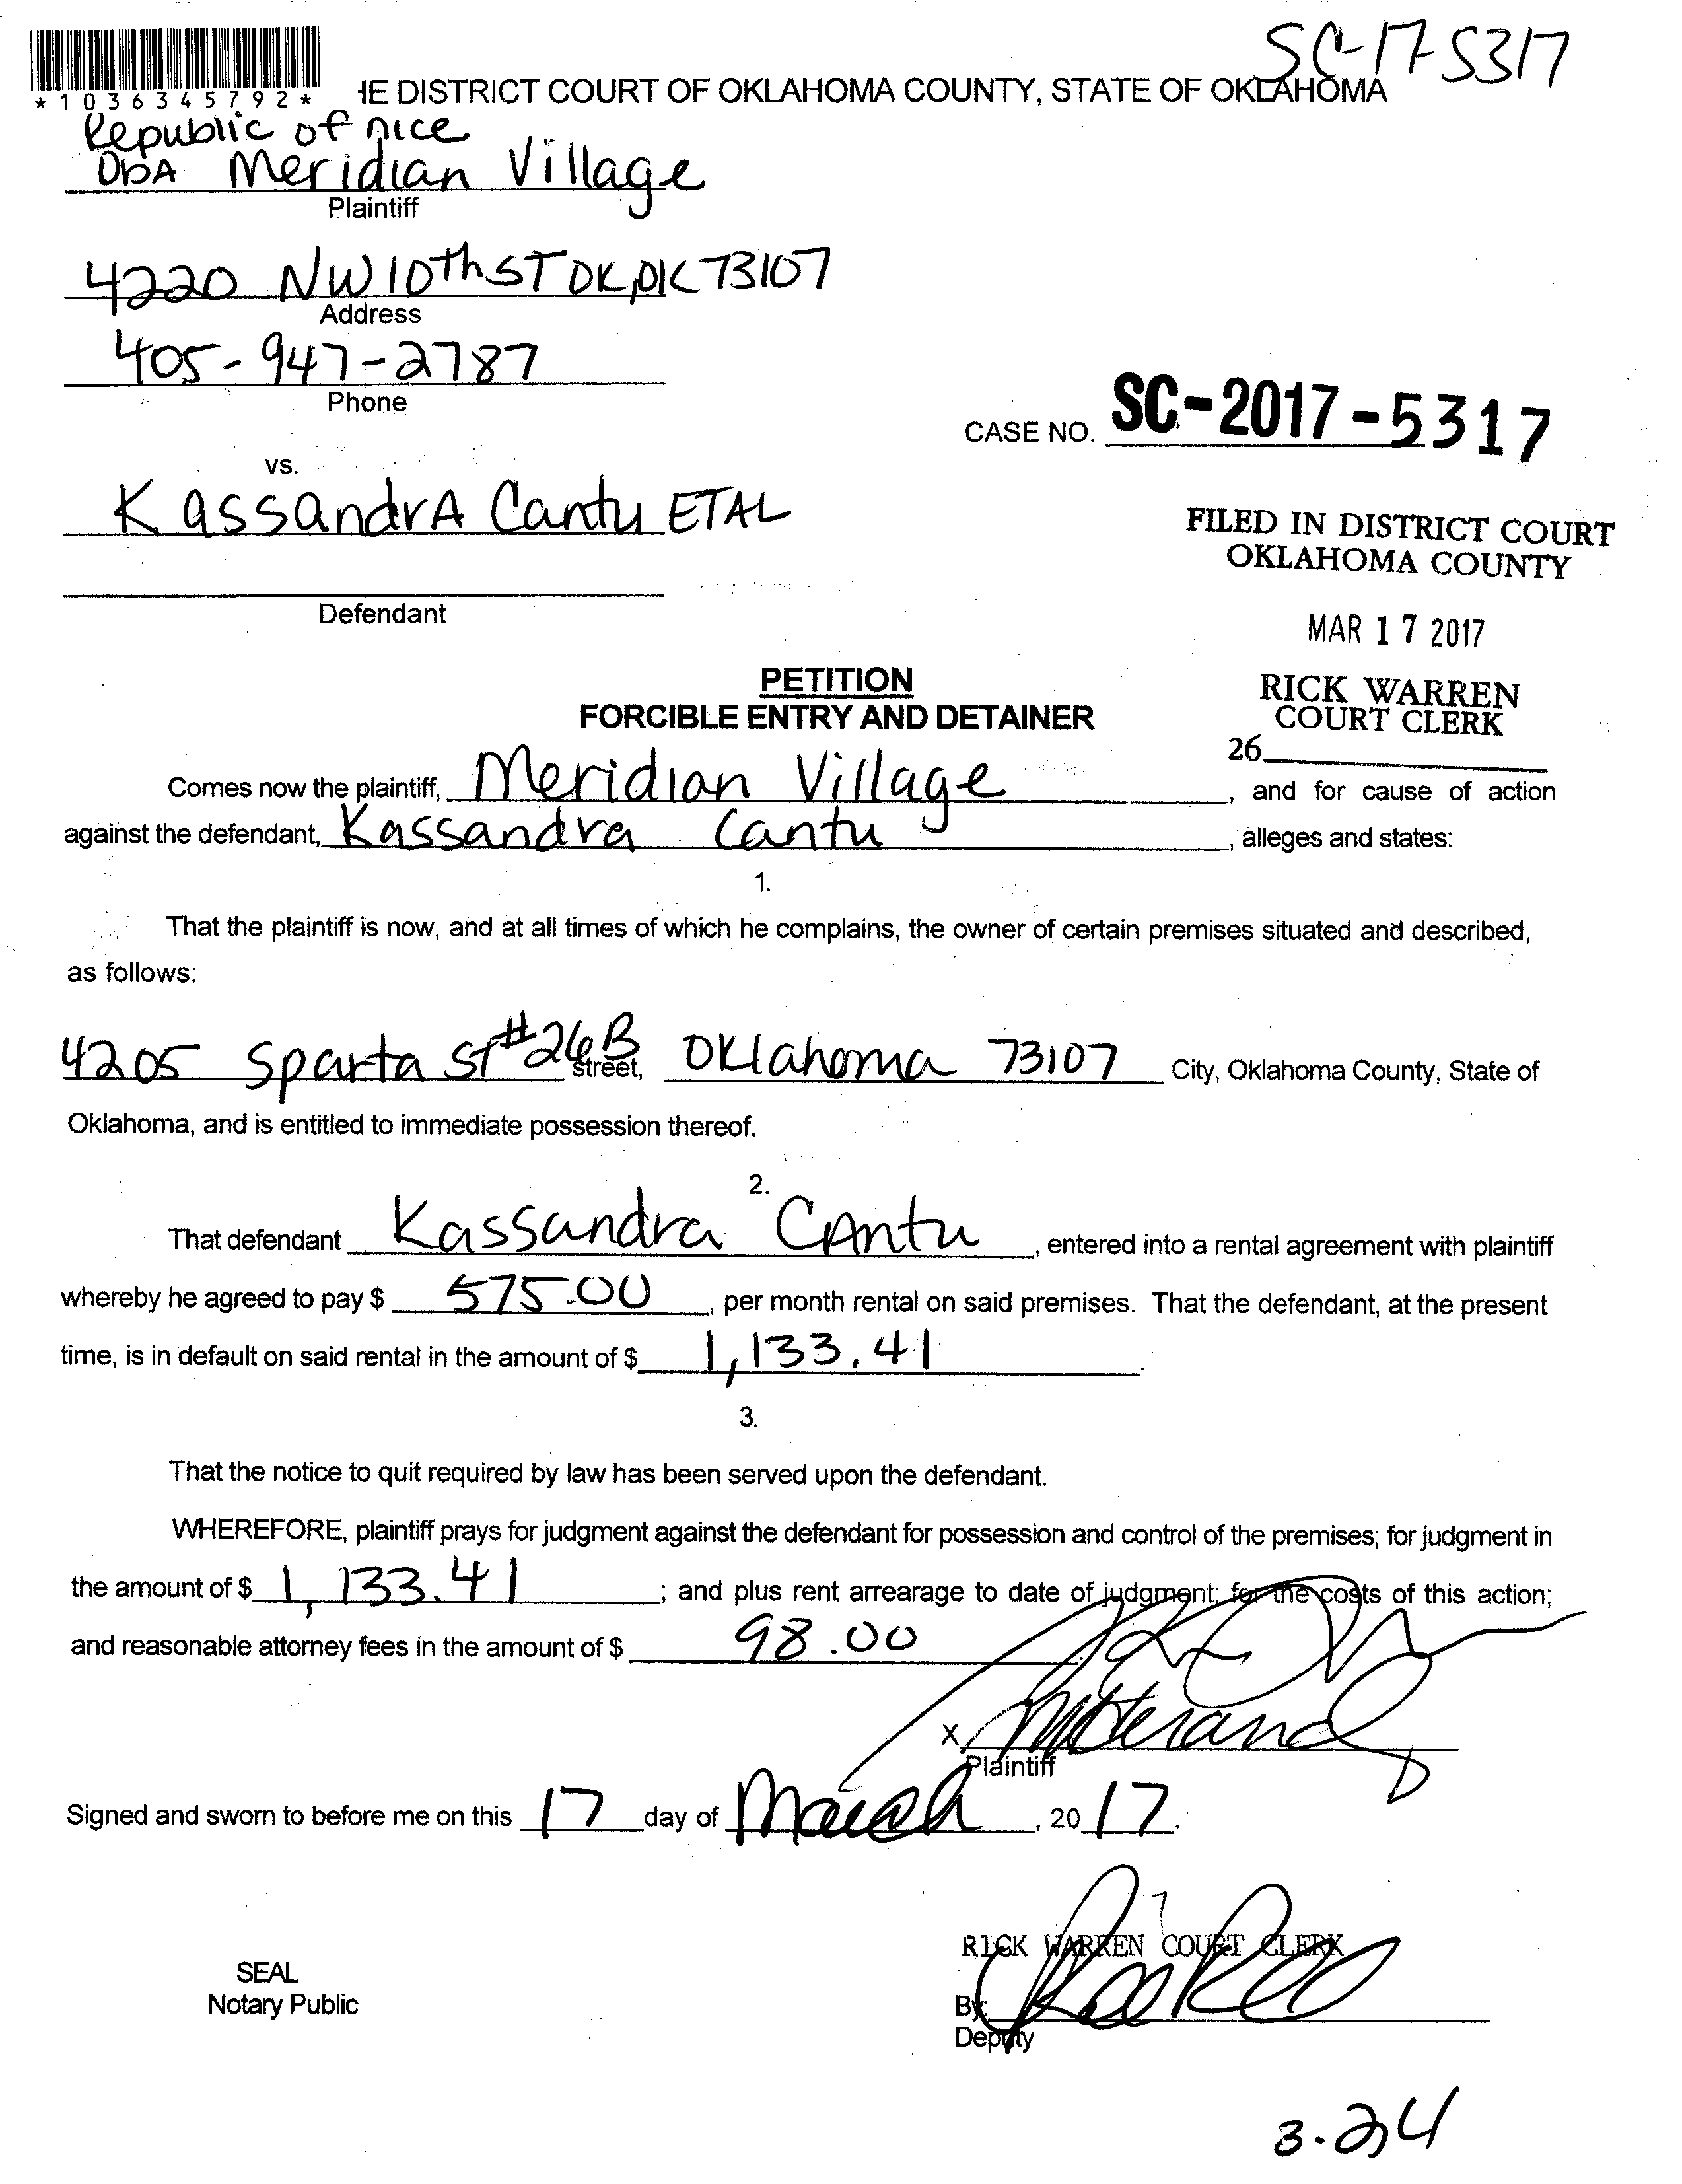 SC-17-5317
*1036345792*
HE DISTRICT COURT OF OKLAHOMA COUNTY, STATE OF OKLAHOMA
Republic of nice
DbA Meridian Village
Plaintiff
4220 NW 10th ST OK, OK 73107
Address
405-947-2787
Phone
CASE NO. SC-2017-5317
vs.
KassandrA Cantu ETAL
FILED IN DISTRICT COURT
OKLAHOMA COUNTY
Defendant
MAR 17 2017
PETITION
FORCIBLE ENTRY AND DETAINER
RICK WARREN
COURT CLERK
26
Comes now the plaintiff, Meridian Village, and for cause of action
against the defendant, Kassandra Cantu, alleges and states:
1.
That the plaintiff is now, and at all times of which he complains, the owner of certain premises situated and described,
as follows:
4205 Sparta ST #26B street, Oklahoma 73107 City, Oklahoma County, State of
Oklahoma, and is entitled to immediate possession thereof.
2.
That defendant Kassandra CAntu, entered into a rental agreement with plaintiff
whereby he agreed to pay $ 575.00, per month rental on said premises. That the defendant, at the present
time, is in default on said rental in the amount of $ 1,133.41.
3.
That the notice to quit required by law has been served upon the defendant.
WHEREFORE, plaintiff prays for judgment against the defendant for possession and control of the premises; for judgment in
the amount of $ 1,133.41; and plus rent arrearage to date of judgment; for the costs of this action;
and reasonable attorney fees in the amount of $ 98.00.
X
Plaintiff
Signed and sworn to before me on this 17 day of March, 2017.
RICK WARREN COURT CLERK
SEAL
Notary Public
By:
Deputy
3-24